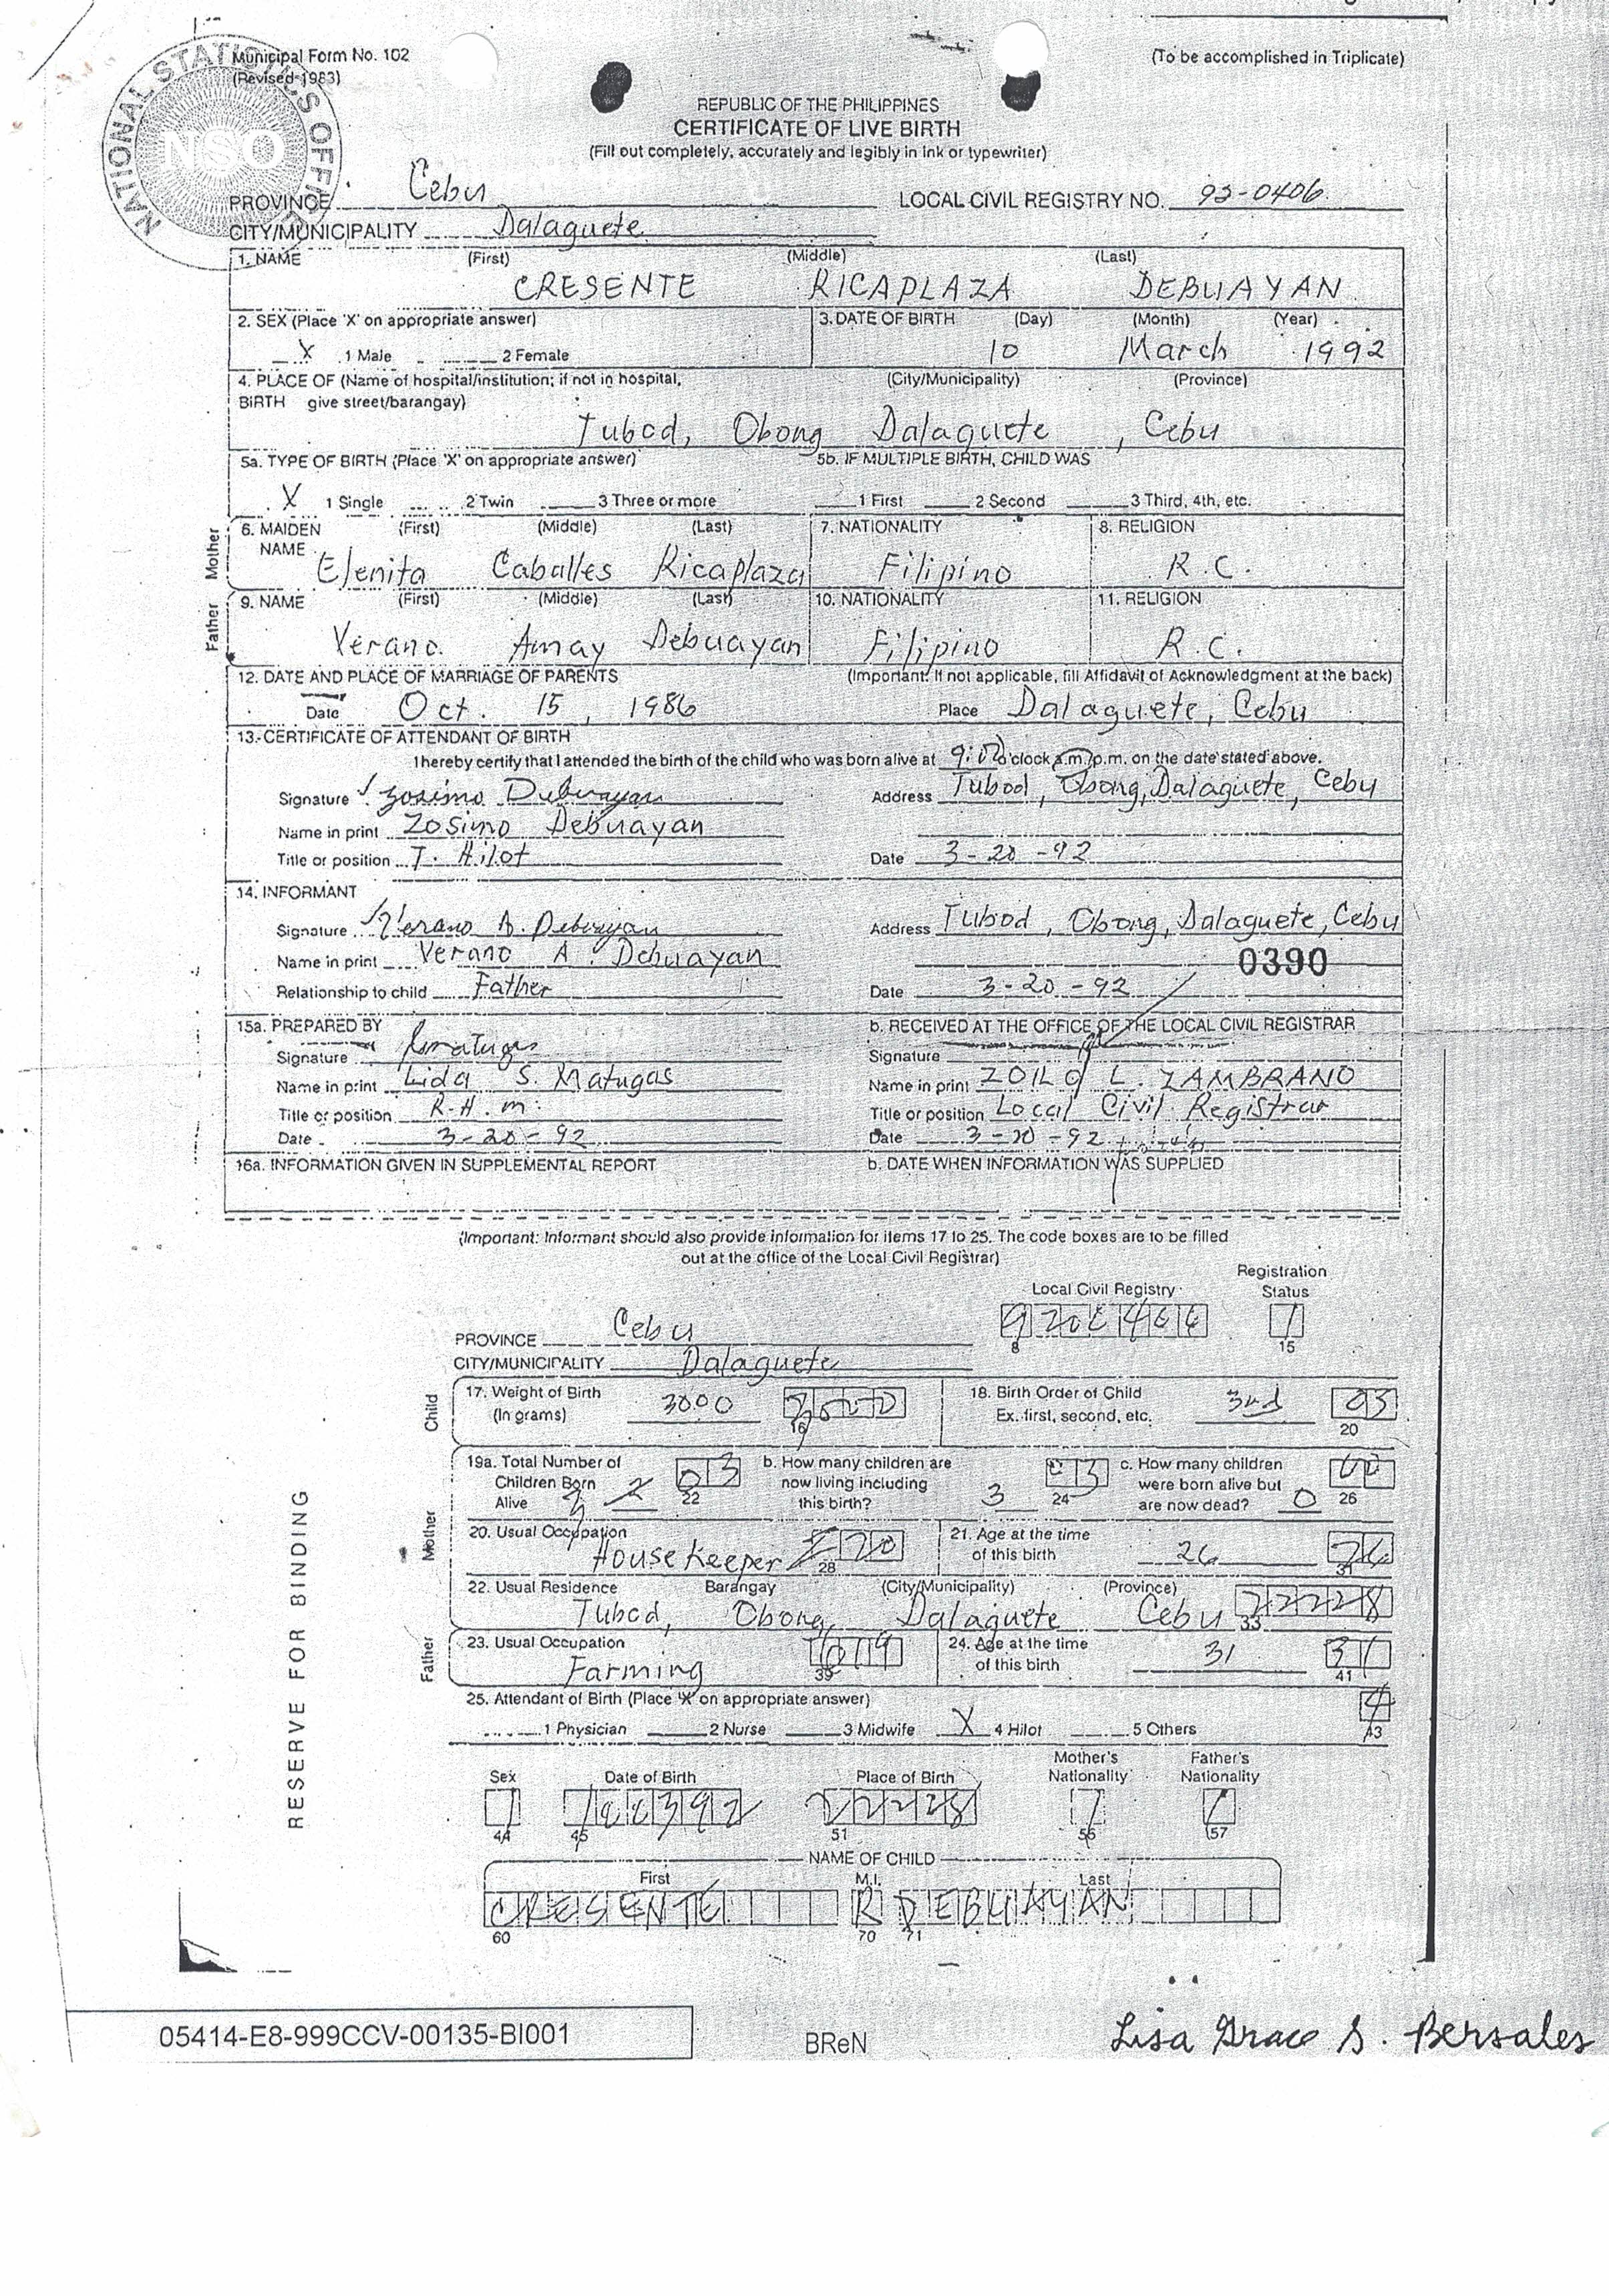 Municipal Form No. 102
(Revised 1983)
(To be accomplished in Triplicate)
NATIONAL STATISTICS OFFICE
NSO
REPUBLIC OF THE PHILIPPINES
CERTIFICATE OF LIVE BIRTH
(Fill out completely, accurately and legibly in ink or typewriter)
PROVINCE Cebu LOCAL CIVIL REGISTRY NO. 92-0406
CITY/MUNICIPALITY Dalaguete
1. NAME (First) (Middle) (Last)
CRESENTE RICAPLAZA DEBUAYAN
2. SEX (Place 'X' on appropriate answer) 3. DATE OF BIRTH (Day) (Month) (Year)
X 1 Male 2 Female 10 March 1992
4. PLACE OF (Name of hospital/institution; if not in hospital, (City/Municipality) (Province)
BIRTH give street/barangay)
Tubod, Obong Dalaguete, Cebu
5a. TYPE OF BIRTH (Place 'X' on appropriate answer) 5b. IF MULTIPLE BIRTH, CHILD WAS
X 1 Single 2 Twin 3 Three or more 1 First 2 Second 3 Third, 4th, etc.
Mother
6. MAIDEN (First) (Middle) (Last) 7. NATIONALITY 8. RELIGION
NAME
Elenita Caballes Ricaplaza Filipino R.C.
Father
9. NAME (First) (Middle) (Last) 10. NATIONALITY 11. RELIGION
Verano Amay Debuayan Filipino R.C.
12. DATE AND PLACE OF MARRIAGE OF PARENTS (Important: If not applicable, fill Affidavit of Acknowledgment at the back)
Date Oct. 15, 1986 Place Dalaguete, Cebu
13. CERTIFICATE OF ATTENDANT OF BIRTH
I hereby certify that I attended the birth of the child who was born alive at 9:00 o'clock a.m./p.m. on the date stated above.
Signature Zosimo Debuayan Address Tubod, Obong, Dalaguete, Cebu
Name in print Zosimo Debuayan
Title or position T. Hilot Date 3-20-92
14. INFORMANT
Signature Verano A. Debuayan Address Tubod, Obong, Dalaguete, Cebu
Name in print Verano A. Debuayan 0390
Relationship to child Father Date 3-20-92
15a. PREPARED BY b. RECEIVED AT THE OFFICE OF THE LOCAL CIVIL REGISTRAR
Signature Signature
Name in print Lida S. Matugas Name in print ZOILO L. ZAMBRANO
Title or position R.H.M. Title or position Local Civil Registrar
Date 3-20-92 Date 3-20-92
16a. INFORMATION GIVEN IN SUPPLEMENTAL REPORT b. DATE WHEN INFORMATION WAS SUPPLIED
(Important: Informant should also provide information for items 17 to 25. The code boxes are to be filled
out at the office of the Local Civil Registrar)
Local Civil Registry Registration Status
9200406 1
8 15
PROVINCE Cebu
CITY/MUNICIPALITY Dalaguete
Child
17. Weight of Birth 3000 18. Birth Order of Child 3rd 03
(In grams) Ex. first, second, etc. 20
Mother
19a. Total Number of 03 b. How many children are 03 c. How many children 00
Children Born 22 now living including were born alive but 26
Alive 3 this birth? 3 24 are now dead? 0
20. Usual Occupation 21. Age at the time
House Keeper 28 of this birth 26 26
22. Usual Residence Barangay (City/Municipality) (Province)
Tubod, Obong, Dalaguete Cebu 22228
33
Father
23. Usual Occupation 24. Age at the time
Farming 39 of this birth 31 31
41
25. Attendant of Birth (Place 'X' on appropriate answer) 4
1 Physician 2 Nurse 3 Midwife X 4 Hilot 5 Others 43
Sex Date of Birth Place of Birth Mother's Nationality Father's Nationality
1 100392 22228 1 1
44 45 51 56 57
NAME OF CHILD
First M.I. Last
CRESENTE R DEBUAYAN
60 70 71
RESERVE FOR BINDING
05414-E8-999CCV-00135-BI001
BReN
Lisa Grace S. Bersales